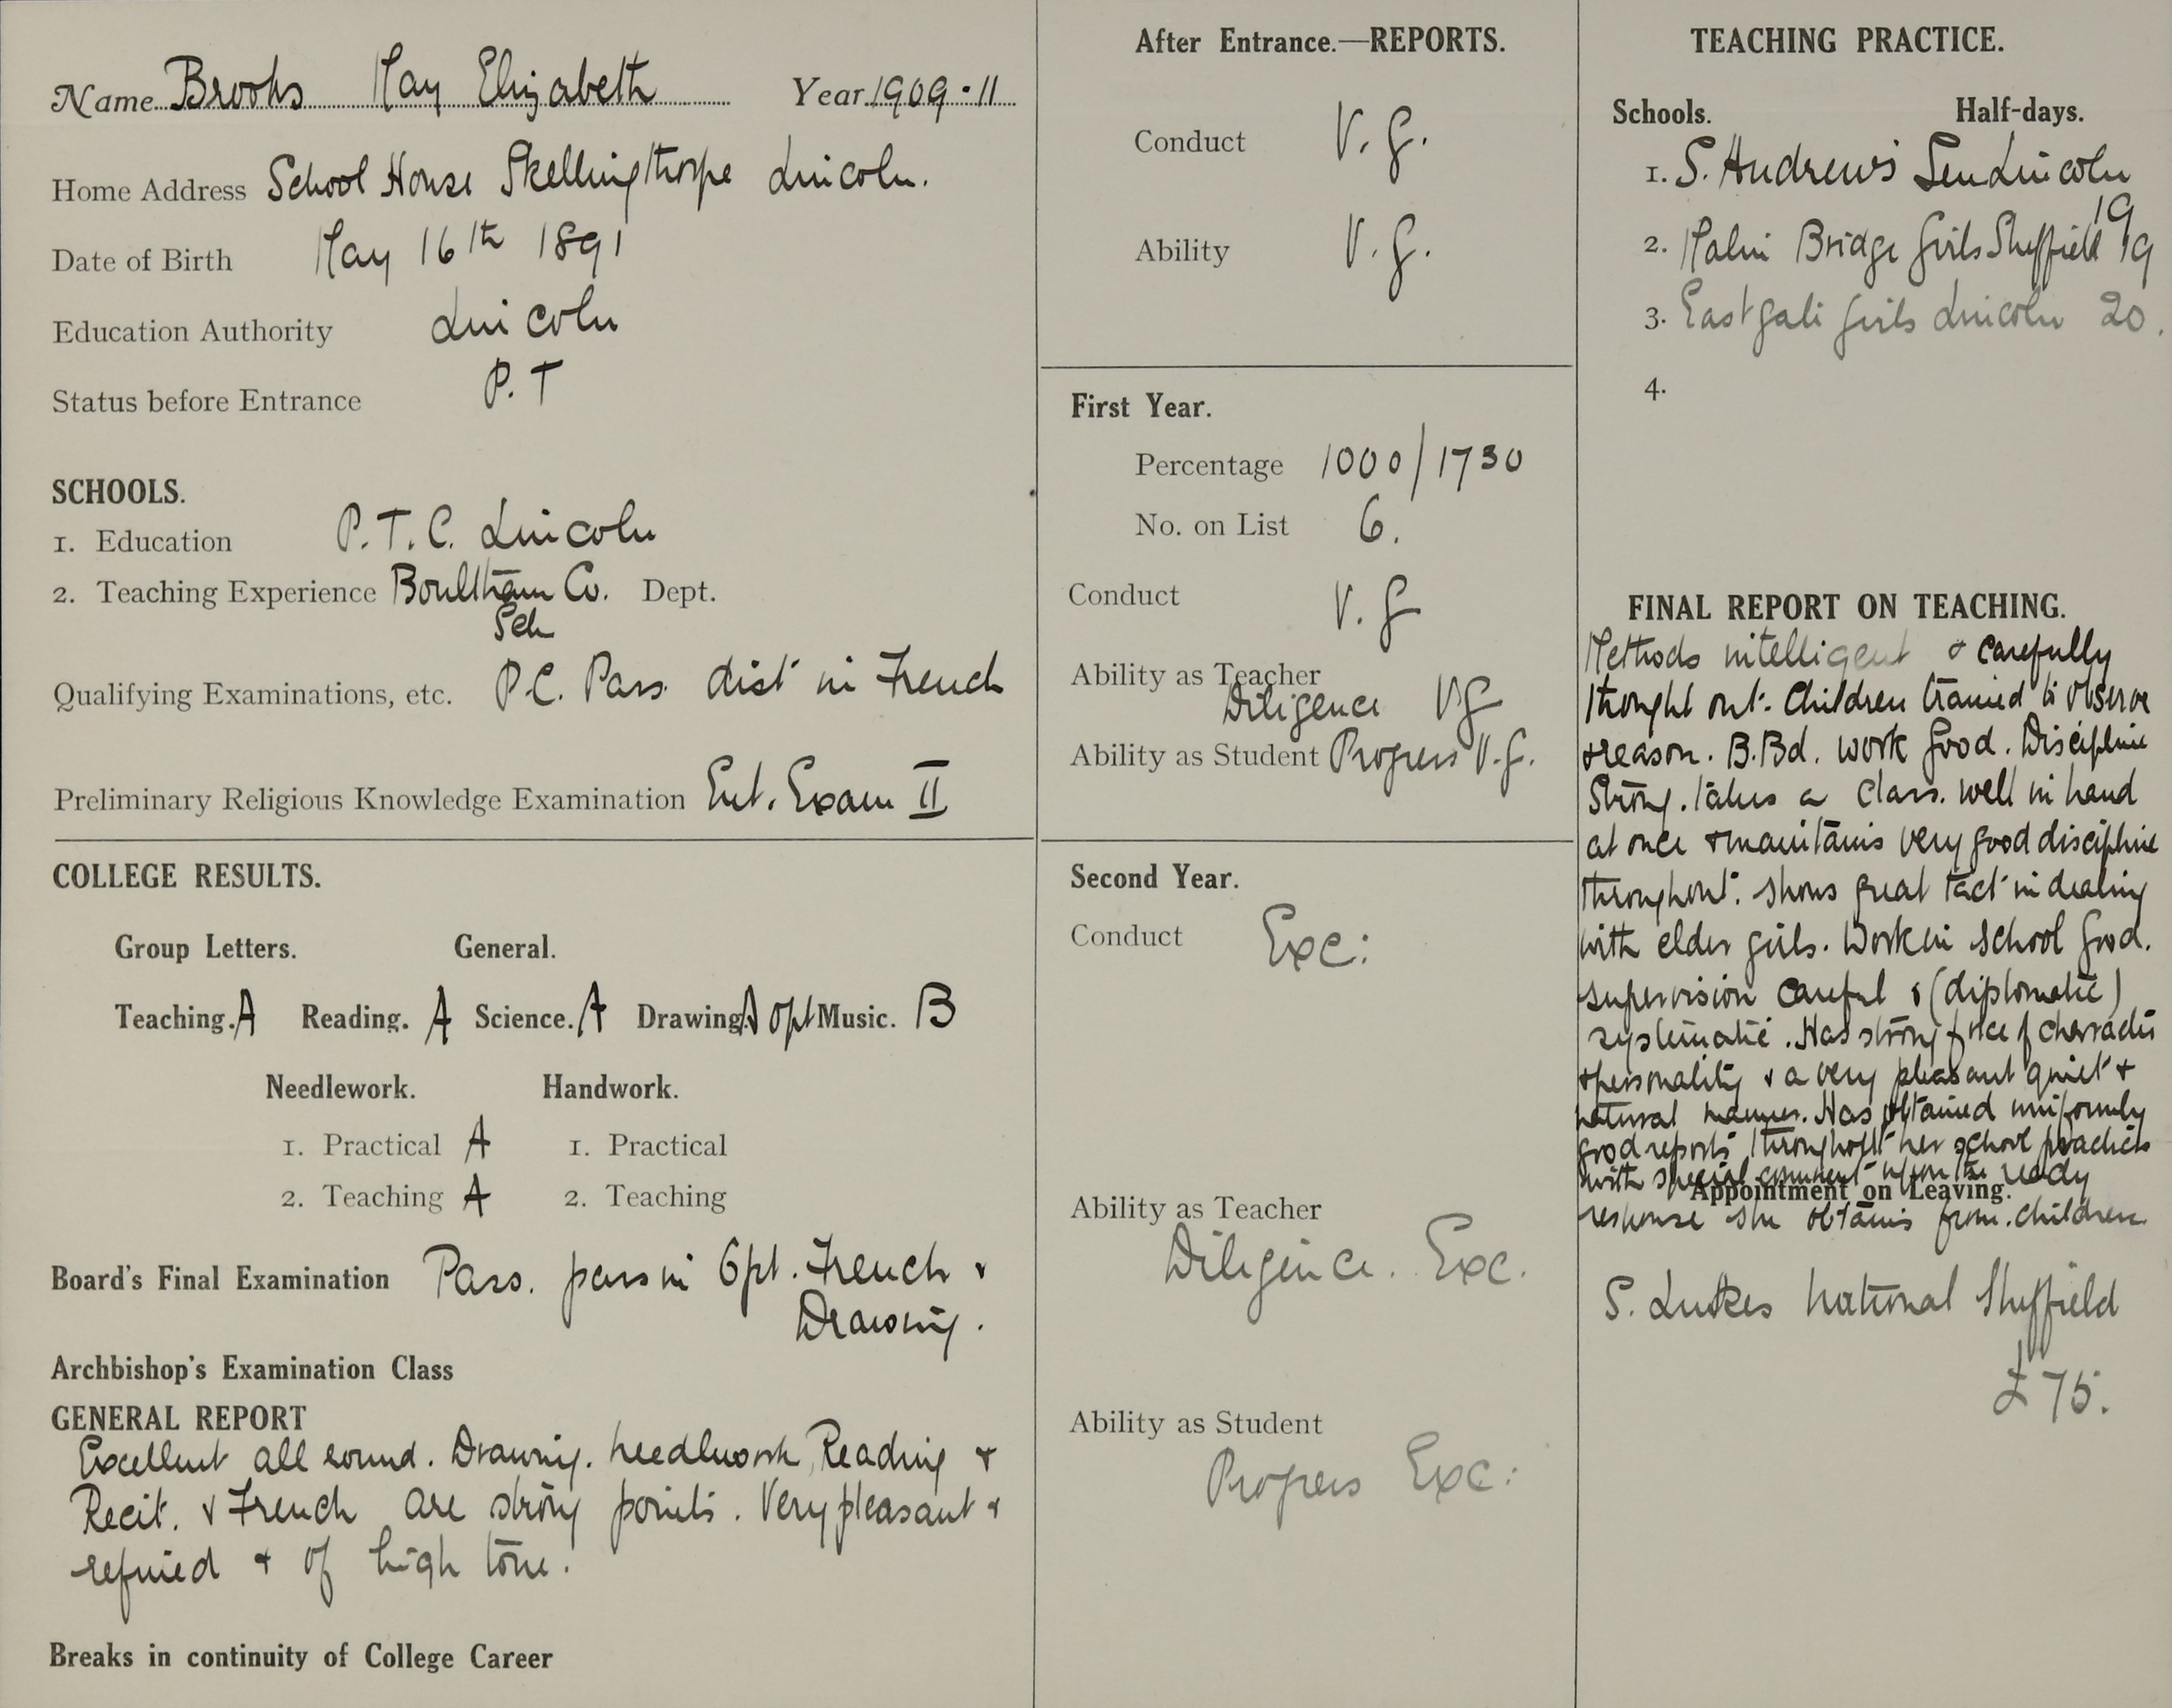 Name Brooks May Elizabeth Year 1909-11
Home Address School House Skellingthorpe Lincoln.
Date of Birth May 16th 1891
Education Authority Lincoln
Status before Entrance P.T
SCHOOLS.
1. Education P.T.C. Lincoln
2. Teaching Experience Boultham Co. Dept.
Sch
Qualifying Examinations, etc. P.C. Pass dist in French
Preliminary Religious Knowledge Examination Ent. Exam II
COLLEGE RESULTS.
Group Letters. General.
Teaching. A Reading. A Science. A Drawing. A opt Music. B
Needlework. Handwork.
1. Practical A 1. Practical
2. Teaching A 2. Teaching
Board's Final Examination Pass. pass in Opt. French &
Drawing.
Archbishop's Examination Class
GENERAL REPORT
Excellent all round. Drawing. needlework, Reading &
Recit. & French are strong points. Very pleasant &
refined & of high tone.
Breaks in continuity of College Career
After Entrance.—REPORTS.
Conduct V.g.
Ability V.g.
First Year.
Percentage 1000/1730
No. on List 6.
Conduct V.g
Ability as Teacher
Diligence Vg
Ability as Student Progress V.g.
Second Year.
Conduct Exc:
Ability as Teacher
Diligence. Exc.
Ability as Student
Progress Exc:
TEACHING PRACTICE.
Schools. Half-days.
1. S. Andrews Sen Lincoln
19
2. Malin Bridge Girls Sheffield 19
3. Eastgate Girls Lincoln 20.
4.
FINAL REPORT ON TEACHING.
Methods intelligent & carefully
thought out. Children trained to observe
& reason. B.Bd. work good. Discipline
Strong. Takes a class well in hand
at once & maintains very good discipline
throughout. Shows great tact in dealing
with elder girls. Work in school good.
supervision careful & (diplomatic)
systematic. Has strong force of character
& personality & a very pleasant quiet &
natural manner. Has obtained uniformly
good reports throughout her school practice
with special comment upon the ready
Appointment on Leaving.
response she obtains from children
S. Lukes National Sheffield
£75.